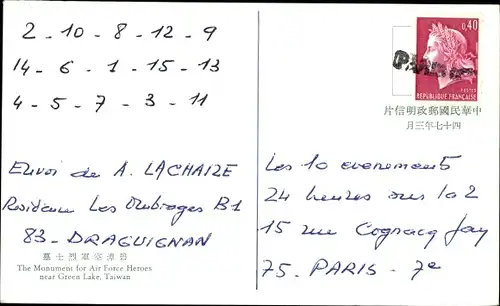 2 - 10 - 8 - 12 - 9
14 - 6 - 1 - 15 - 13
4 - 5 - 7 - 3 - 11
Envoi de A. LACHAIZE
Residence Les Ombrages B1
83 - DRAGUIGNAN
碧潭空軍烈士墓
The Monument for Air Force Heroes
near Green Lake, Taiwan
0,40
POSTES
REPUBLIQUE FRANCAISE
中華民國郵政明信片
四十七年三月
Les 10 evenements
24 heures sur la 2
15 rue Cognacq Jay
75 - PARIS - 7e